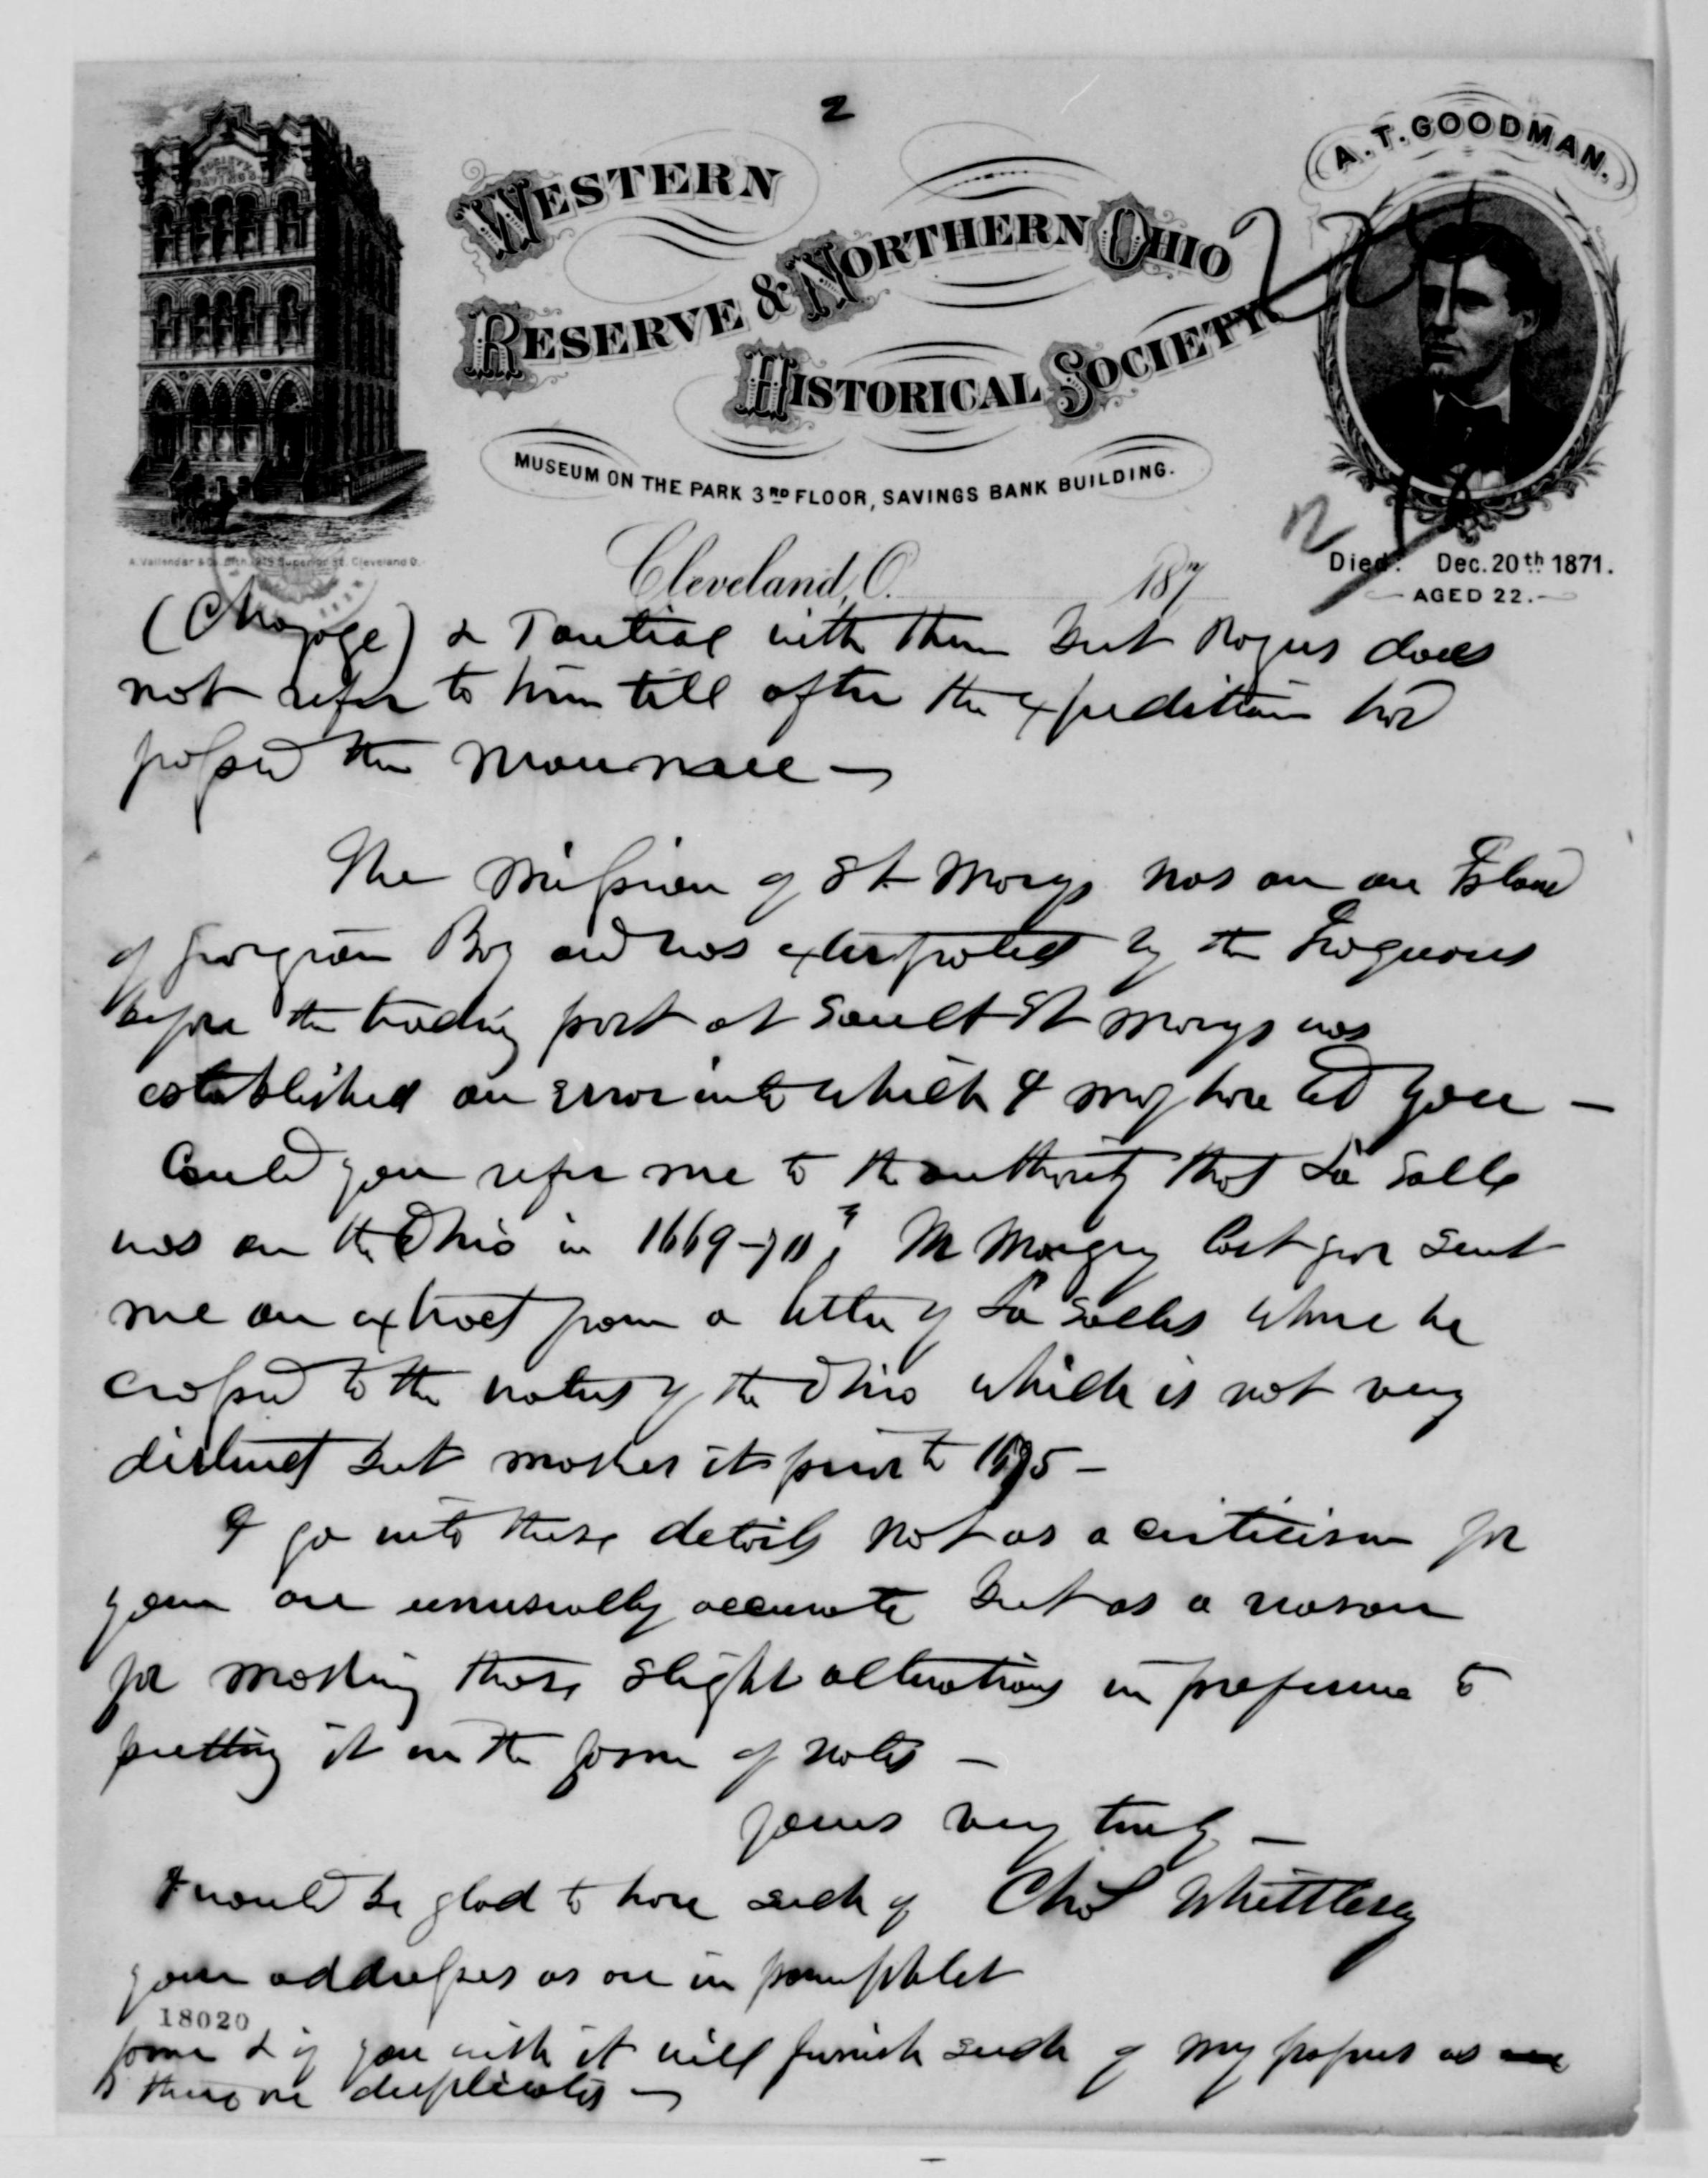 2
WESTERN
RESERVE & NORTHERN OHIO
HISTORICAL SOCIETY
MUSEUM ON THE PARK 3RD FLOOR, SAVINGS BANK BUILDING.
A.T. GOODMAN.
Died: Dec. 20th 1871.
AGED 22.
Cleveland, O. 187
& Pontiac with them but Rogers does
not refer to him till after the expedition had
passed the Maumee —
The Mission of St Marys was on an Island
of Georgian Bay and was extirpated by the Iroquois
before the trading post at Sault St Marys was
established an error into which I may have led you —
Could you refer me to the authority that La Salle
was on the Ohio in 1669-70? M Margry last year sent
me an extract from a letter of La Salles where he
crossed to the waters of the Ohio which is not very
distinct but makes it prior to 1675 —
I go into these details not as a criticism for
you are unusually accurate but as a reason
for making those slight alterations in preference to
putting it in the form of notes —
Yours very truly —
Chas Whittlesey
I would be glad to have such of
your addresses as are in pamphlet
18020
form & if you wish it will furnish such of my papers as
there are duplicates —